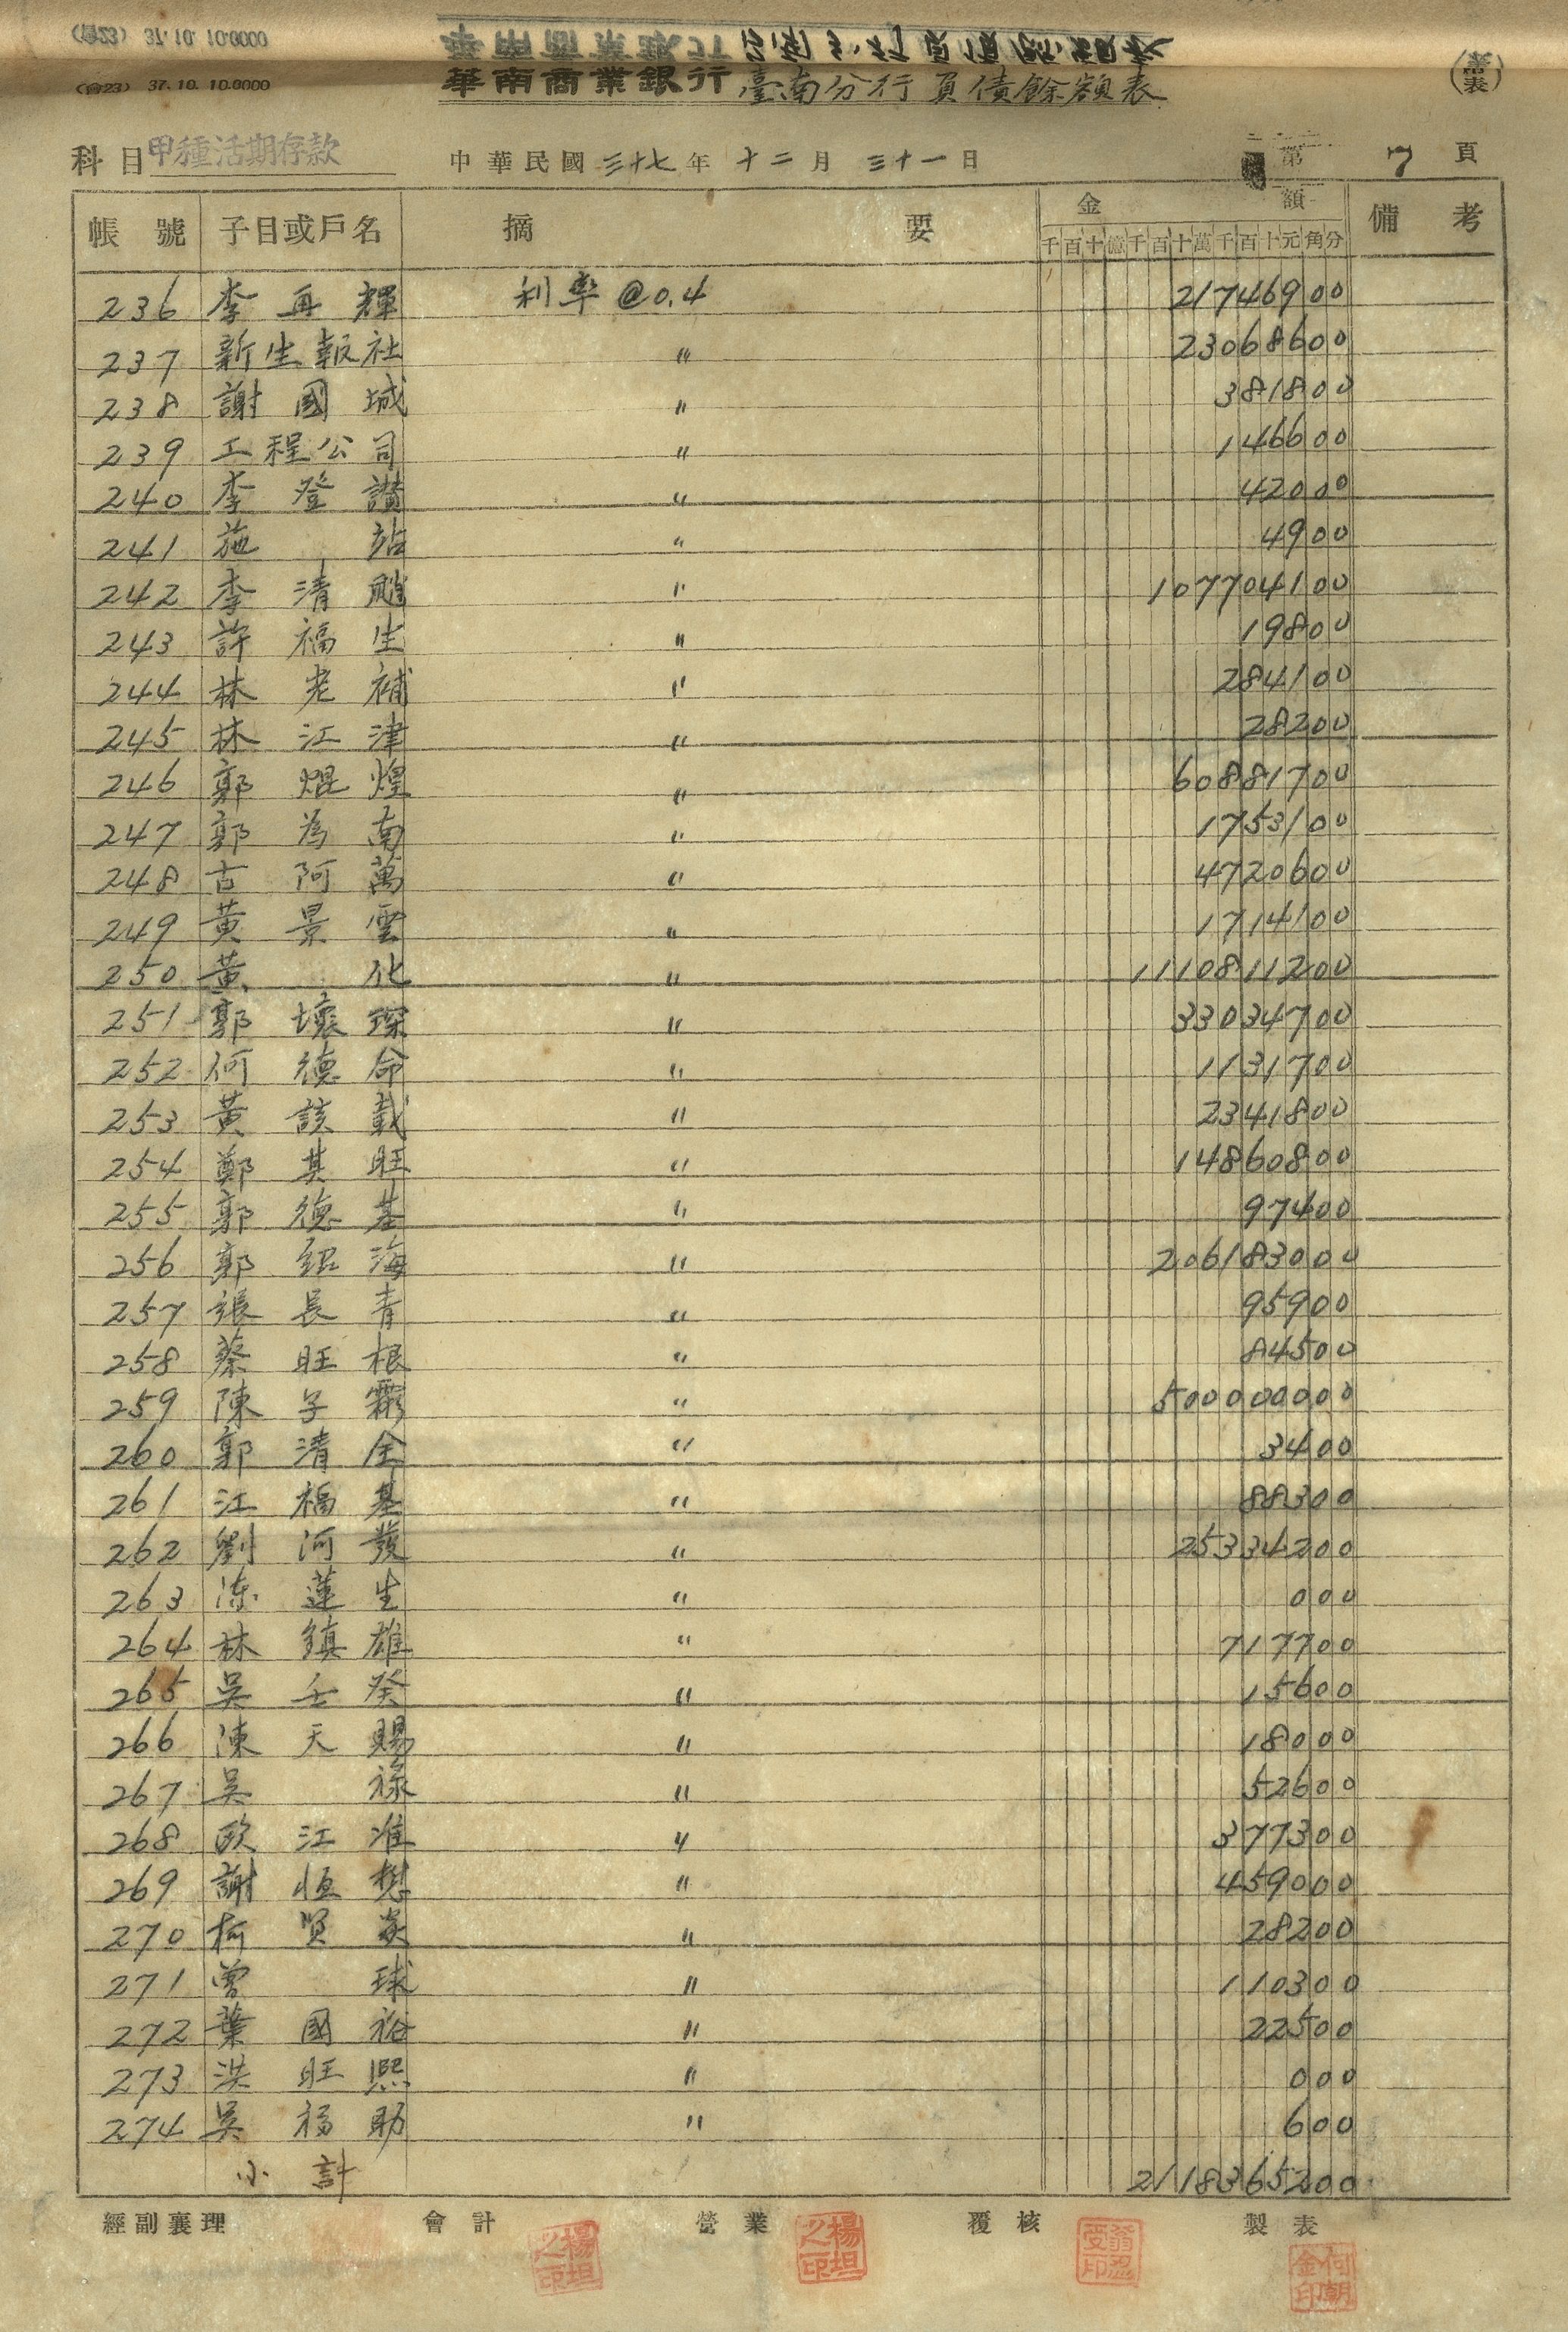 (會23) 37.10. 10.0000
華南商業銀行臺南分行負債餘額表
科目 甲種活期存款 中華民國三十七年十二月三十一日 第7頁
帳號 子目或戶名 摘要 金額 備考
千百十億千百十萬千百十元角分
236 李再輝 利率@0.4 21746900
237 新生報社 〃 23068600
238 謝國城 〃 381800
239 工程公司 〃 146600
240 李登讚 〃 42000
241 施站 〃 4900
242 李清 〃 107704100
243 許福生 〃 19800
244 林老補 〃 284100
245 林江津 〃 28200
246 郭焜煌 〃 60881700
247 郭為南 〃 1753100
248 古阿萬 〃 4720600
249 黃景雲 〃 1714100
250 黃化 〃 1110811200
251 郭壞琛 〃 33034700
252 何德命 〃 1131700
253 黃該載 〃 2341800
254 鄭其旺 〃 14860800
255 郭德基 〃 97400
256 郭紹海 〃 206183000
257 張長青 〃 95900
258 蔡旺根 〃 84500
259 陳子 〃 500000000
260 郭清全 〃 3400
261 江福基 〃 88300
262 劉河發 〃 25334200
263 陳蓮生 〃 000
264 林鎮雄 〃 717700
265 吳壬癸 〃 15600
266 陳天賜 〃 18000
267 吳祿 〃 52600
268 歐江準 〃 377300
269 謝恒懋 〃 459000
270 柯賢 〃 28200
271 曾球 〃 110300
272 葉國裕 〃 22500
273 洪旺熙 〃 000
274 吳福助 〃 600
小計 2118365200
經副襄理 會計 營業 覆核 製表
楊坦之印 楊坦之印 翁受印 何朝金印